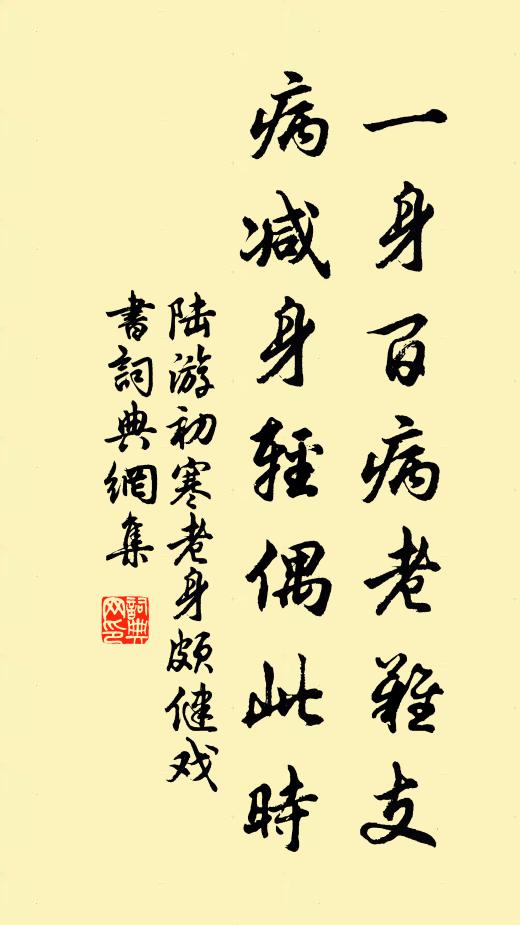 一身百病老難支
病减身輕偶此時
陆游初寒老身頗健戏
書詞典網集
詞典
网印